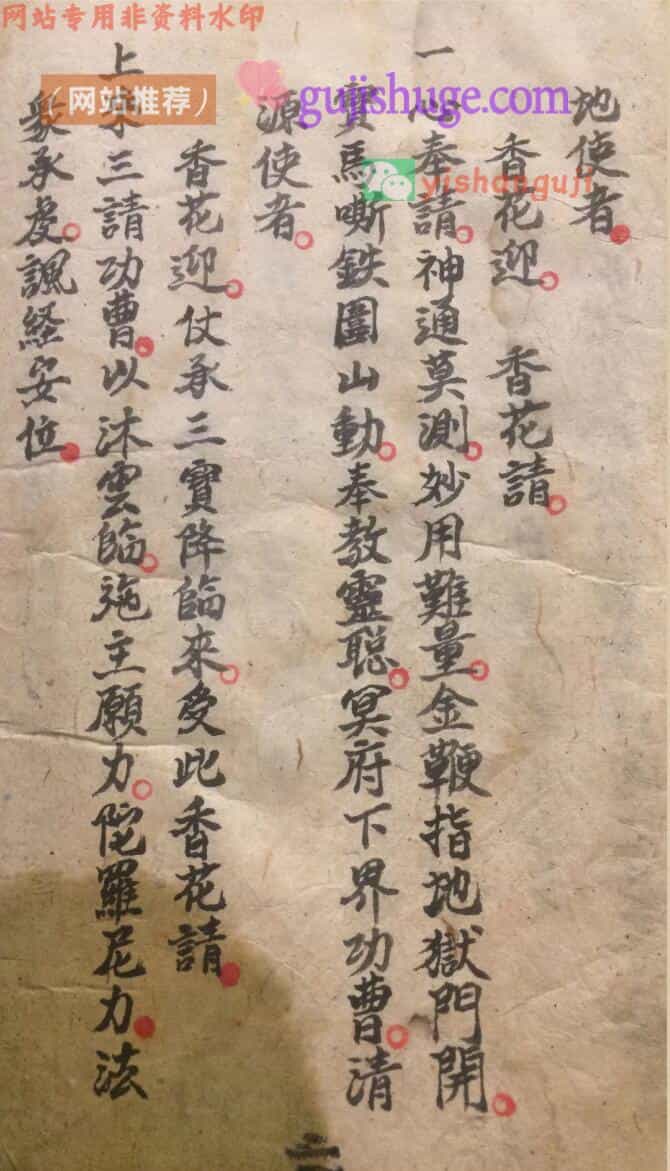 网站专用非资料水印
（网站推荐）
gujishuge.com
yishanguji
地使者
香花迎 香花請
一心奉請神通莫測妙用難量金鞭指地獄門開
寶馬嘶鉄圍山動奉教靈聡冥府下界功曹清
源使者
香花迎仗承三寶降臨來受此香花請
上來三請功曹以沐雲臨施主願力陀羅尼力法
衆承虔諷経安位
二